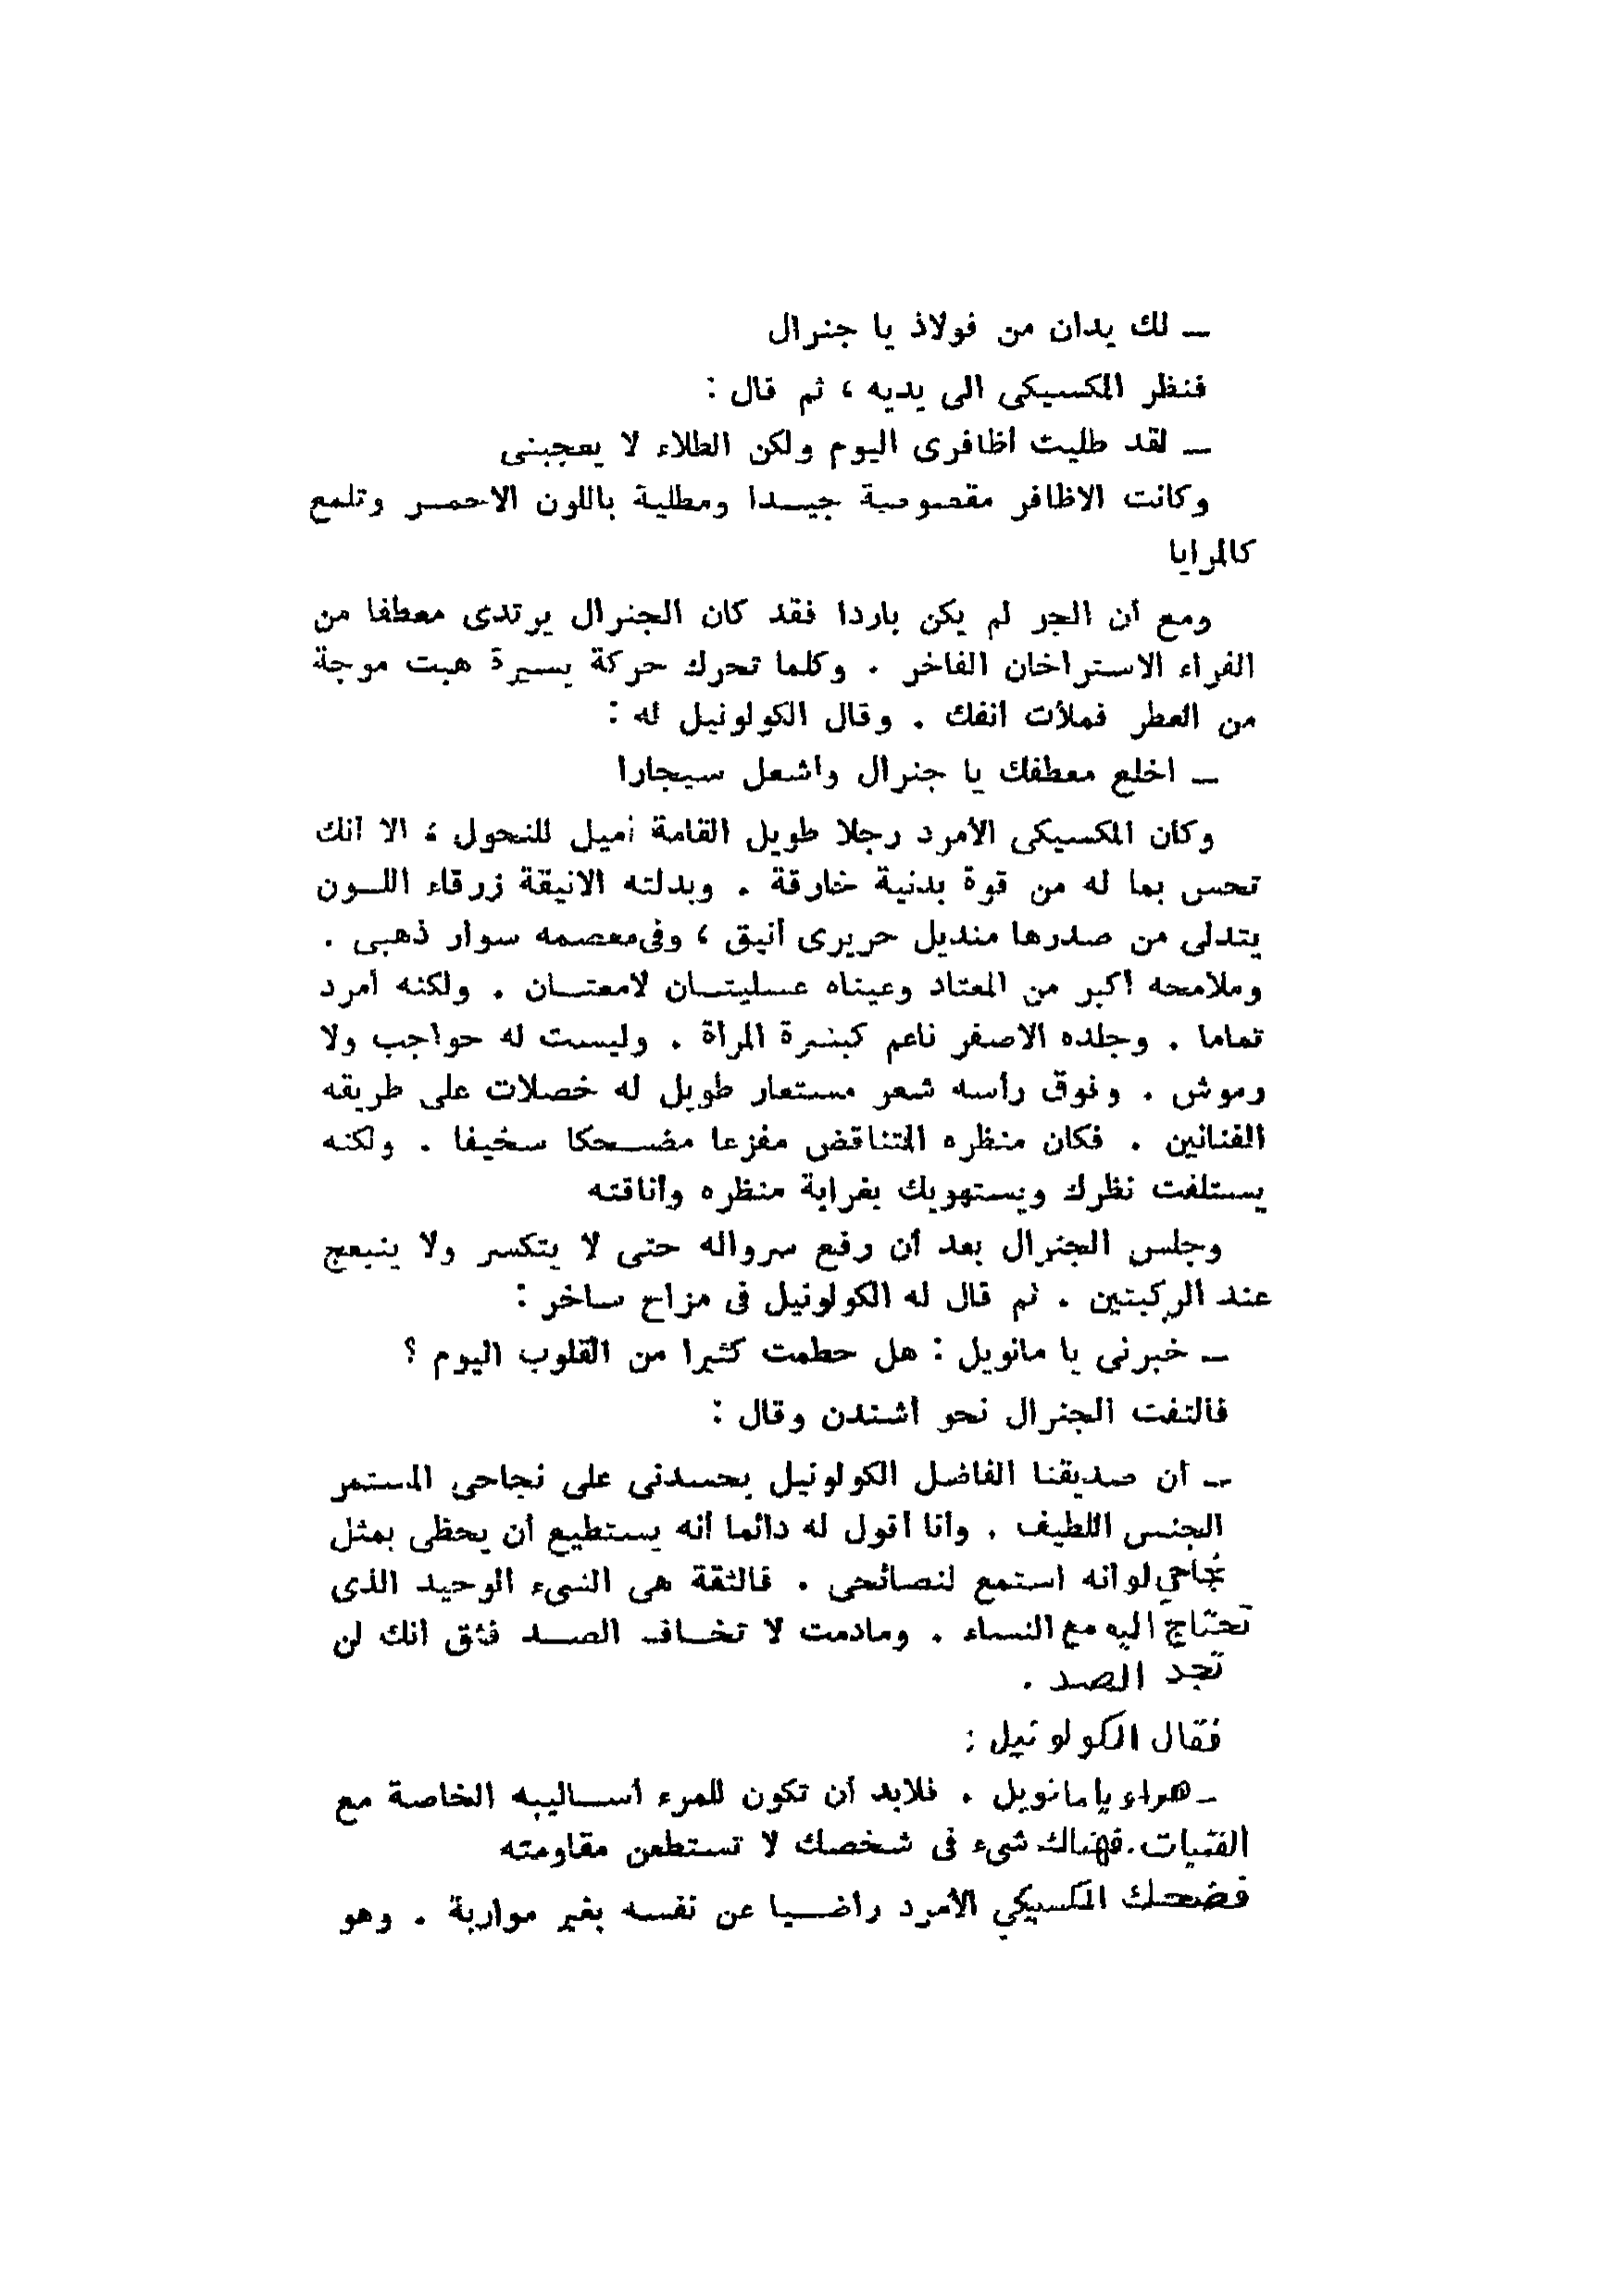 ــ لك يدان من فولاذ يا جنرال
فنظر المكسيكى الى يديه ، ثم قال :
ــ لقد طليت أظافرى اليوم ولكن الطلاء لا يعجبنى
وكانت الاظافر مقصوصة جيدا ومطلية باللون الاحمر وتلمع
كالمرايا
ومع أن الجو لم يكن باردا فقد كان الجنرال يرتدى معطفا من
الفراء الاستراخان الفاخر . وكلما تحرك حركة يسيرة هبت موجة
من العطر فملأت أنفك . وقال الكولونيل له :
ــ اخلع معطفك يا جنرال واشعل سيجارا
وكان المكسيكى الأمرد رجلا طويل القامة أميل للنحول ، الا أنك
تحس بما له من قوة بدنية خارقة . وبدلته الانيقة زرقاء اللون
يتدلى من صدرها منديل حريرى أنيق ، وفى معصمه سوار ذهبى .
وملامحه أكبر من المعتاد وعيناه عسليتان لامعتان . ولكنه أمرد
تماما . وجلده الاصفر ناعم كبشرة المرأة . وليست له حواجب ولا
رموش . وفوق رأسه شعر مستعار طويل له خصلات على طريقه
الفنانين . فكان منظره المتناقض مفزعا مضحكا سخيفا . ولكنه
يستلفت نظرك ويستهويك بغرابة منظره وأناقته
وجلس الجنرال بعد أن رفع سرواله حتى لا يتكسر ولا ينبعج
عند الركبتين . ثم قال له الكولونيل فى مزاح ساخر :
ــ خبرنى يا مانويل : هل حطمت كثيرا من القلوب اليوم ؟
فالتفت الجنرال نحو أشندن وقال :
ــ أن صديقنا الفاضل الكولونيل يحسدنى على نجاحى المستمر
الجنس اللطيف . وأنا أقول له دائما أنه يستطيع أن يحظى بمثل
نجاحي لو أنه استمع لنصائحى . فالثقة هى الشىء الوحيد الذى
تحتاج اليه مع النساء . ومادمت لا تخاف الصد فثق أنك لن
تجد الصد .
فقال الكولونيل :
ــ هراء يا مانويل . فلابد أن تكون للمرء أساليبه الخاصة مع
الفتيات . فهناك شىء فى شخصك لا تستطعن مقاومته
فضحك المكسيكي الأمرد راضيا عن نفسه بغير مواربة . وهو